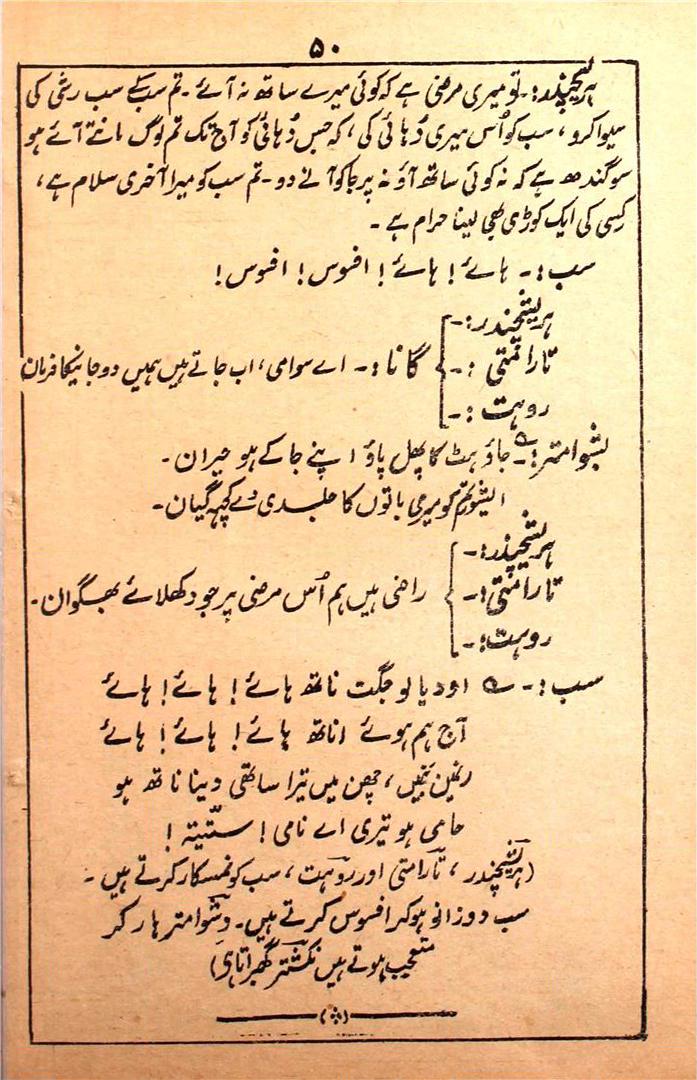 ۵۰
ہریشچندر:۔ تو میری مرضی ہے کہ کوئی میرے ساتھ نہ آئے۔ تم سب کے سب رشی کی
سیوا کرو، سب کو اُس میری دُہائی کی، کہ جس دُہائی کو آج تک تم لوگ مانتے آئے ہو
سوگندھ ہے کہ نہ کوئی ساتھ آؤ نہ پرجا کو آنے دو۔ تم سب کو میرا آخری سلام ہے،
کسی کی ایک کوڑی بھی لینا حرام ہے۔
سب:۔ ہائے! ہائے! افسوس! افسوس!
ہریشچندر:۔
تارامتی:۔ گانا:۔ اے سوامی، اب جاتے ہیں ہمیں دو جانیکا فرمان
روہت:۔
بشوامتر:۔ جاؤ ہٹ کا پھل پاؤ اپنے جا کے ہو حیران۔
ایشور تم کو میری باتوں کا جلدی دے کچھ گیان۔
ہریشچندر:۔
تارامتی:۔ راضی ہیں ہم اُس مرضی پر جو دکھلائے بھگوان۔
روہت:۔
سب:۔ او دیالو جگت ناتھ ہائے! ہائے! ہائے
آج ہم ہوئے اناتھ ہائے! ہائے! ہائے
چھن میں تیرا ساتھی دینا ناتھ ہو
حامی ہو تیری اے نامی! ستیہ!
(ہریشچندر، تارامتی اور روہت، سب کو نمسکار کرتے ہیں۔
سب دوزانو ہوکر افسوس کرتے ہیں۔ وشوامتر ہار کر
متعجب ہوتے ہیں نکشتر گھبراتا ہی)